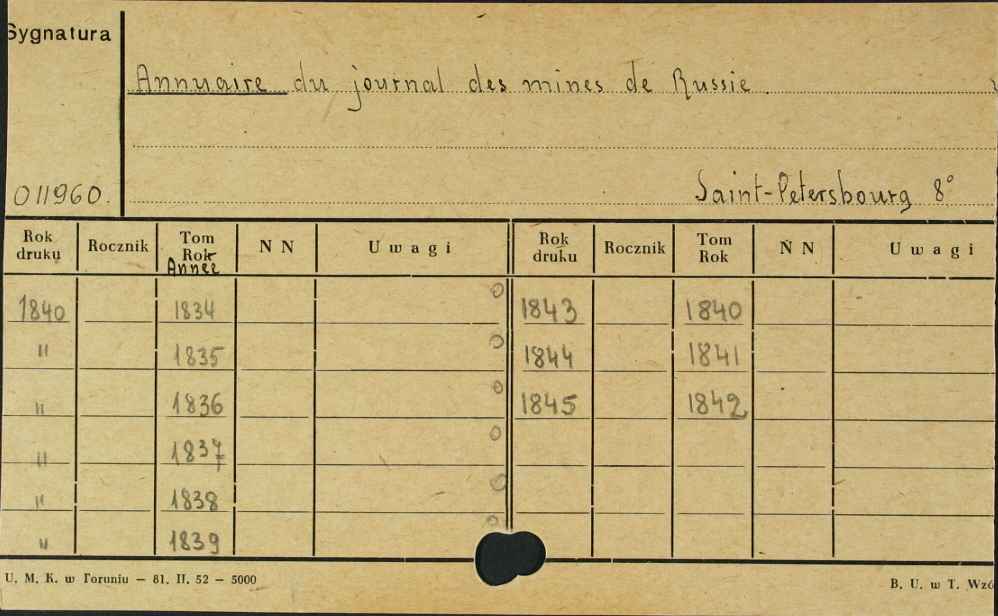 Sygnatura
Annuaire du journal des mines de Russie.
011960.
Saint-Petersbourg 8°
Rok druku Rocznik Tom Rok Année N N Uwagi Rok druku Rocznik Tom Rok N N Uwagi
1840 1834 0 1843 1840
" 1835 0 1844 1841
" 1836 0 1845 1842
" 1837 0
" 1838 0
" 1839 0
U. M. K. w Toruniu — 81. II. 52 — 5000
B. U. w T. Wzó